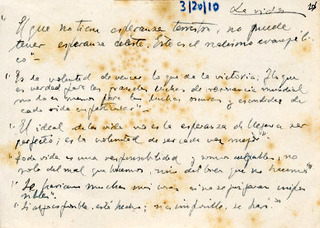 3/20/10
La vida
"El que no tiene esperanza terrestre, no puede
tener esperanza celeste. Este es el realismo evangéli-
co"
"Es la voluntad de vencer lo que da la victoria; lo que
es verdad para las grandes luchas de resonancia mundial
no lo es menos para las luchas oscuras y escondidas de
cada vida
"El ideal de la vida no es la esperanza de llegar a ser
perfecto; es la voluntad de ser cada vez mejor"
"Toda vida es una responsabilidad y somos culpables, no
solo del mal que hacemos, sino del bien que no hacemos"
"Se harían muchas más cosas si no se juzgaran impo-
sibles"
"Si es posible, está hecho; si es imposible, se hará"